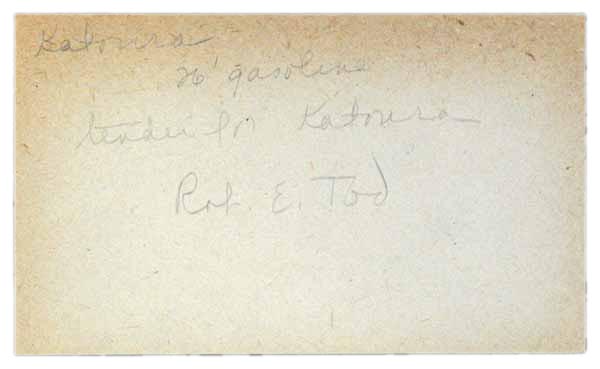 Katoura
26' gasoline
tender for Katoura
Rob. E. Tod